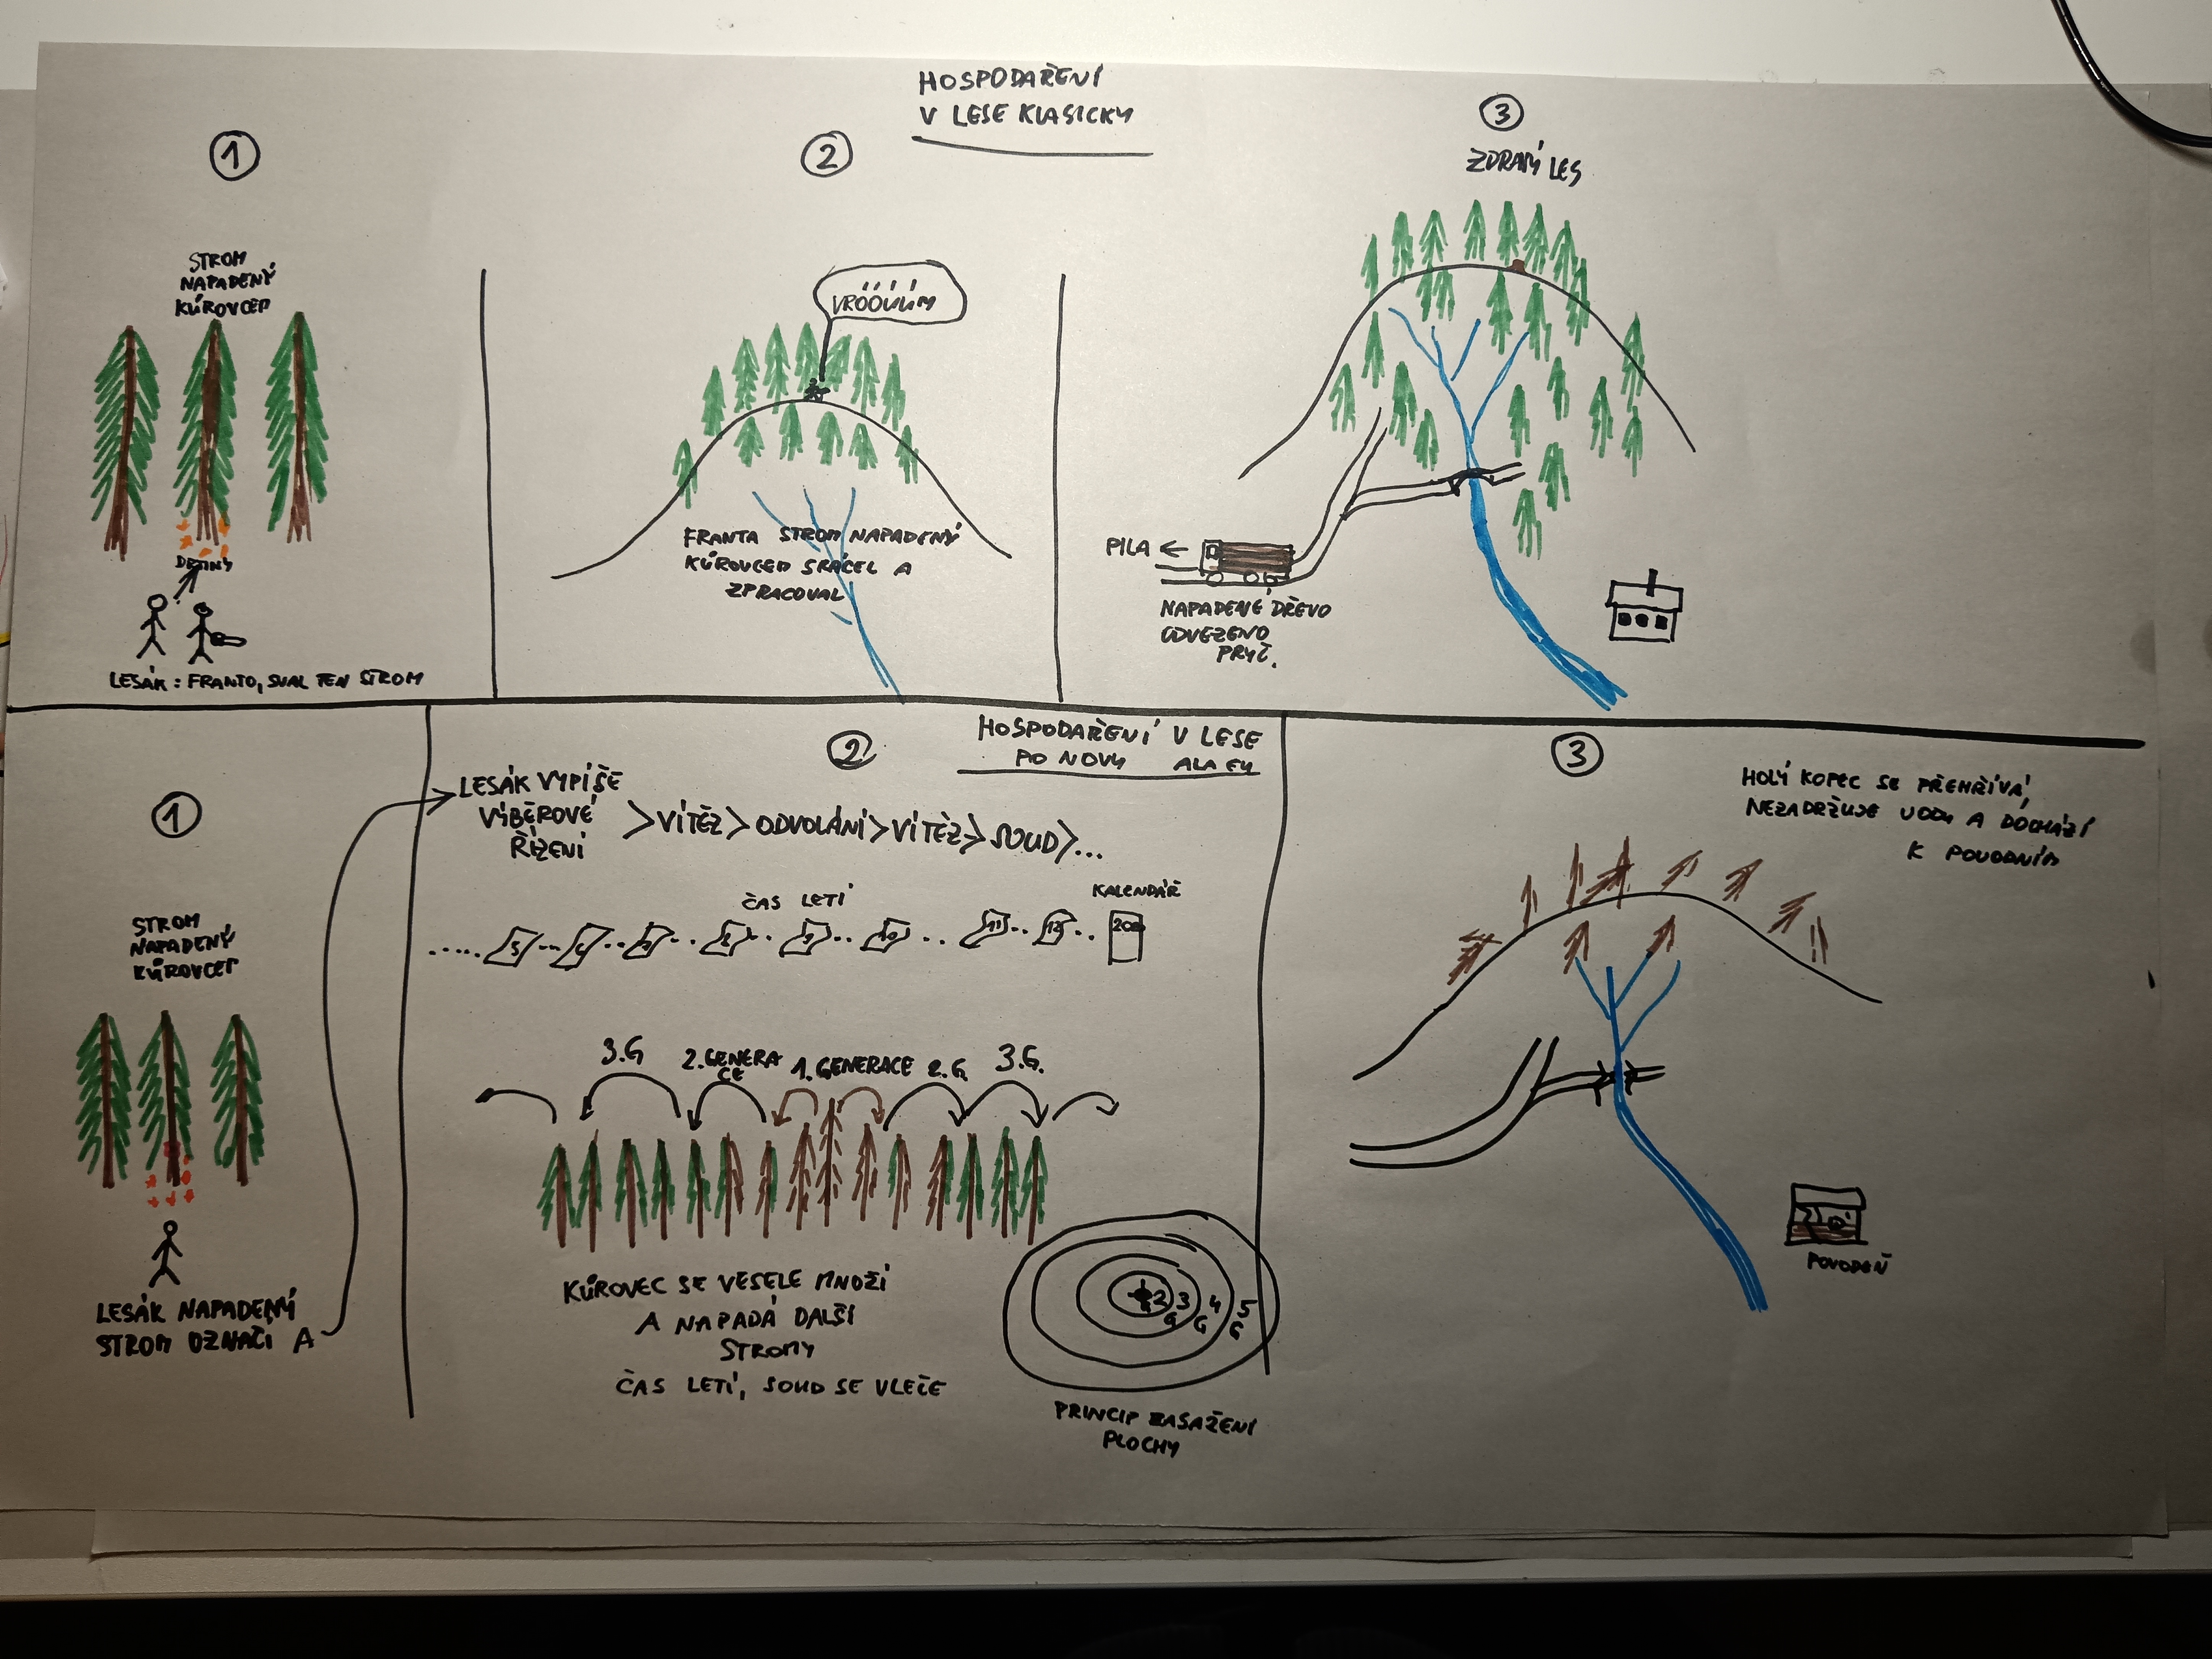 HOSPODAŘENÍ
V LESE KLASICKY
1
STROM
NAPADENÝ
KŮROVCEM
LESÁK: FRANTO, SVAL TEN STROM
2
VRÓÓÚÚM
FRANTA STROM NAPADENÝ
KŮROVCEM SKÁCEL A
ZPRACOVAL
3
ZDRAVÝ LES
PILA
NAPADENÉ DŘEVO
ODVEZENO
PRYČ.
HOSPODAŘENÍ V LESE
PO NOVU ALA EU
1
STROM
NAPADENÝ
KŮROVCEM
LESÁK NAPADENÝ
STROM OZNAČÍ A
2
LESÁK VYPÍŠE
VÝBĚROVÉ
ŘÍZENÍ
>VÍTĚZ>ODVOLÁNÍ>VÍTĚZ>SOUD>...
ČAS LETÍ
KALENDÁŘ
11 12
3.G 2.GENERA
CE
1.GENERACE 2.G. 3.G.
KŮROVEC SE VESELE MNOŽÍ
A NAPADÁ DALŠÍ
STROMY
ČAS LETÍ, SOUD SE VLEČE
2 3 4 5
G G G
PRINCIP ZASAŽENÍ
PLOCHY
3
HOLÝ KOPEC SE PŘEHŘÍVÁ,
NEZADRŽUJE VODU A DOCHÁZÍ
K POVODNÍM
POVODEŇ